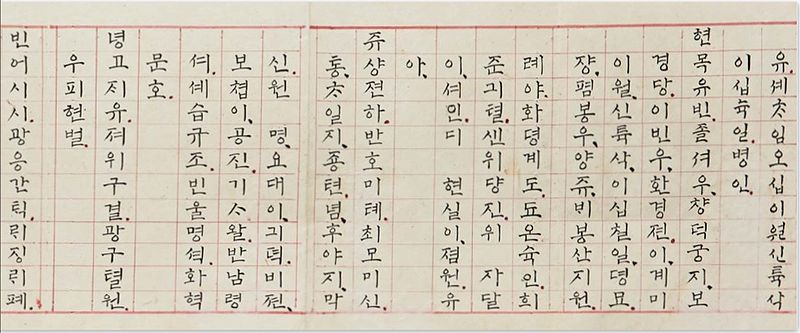 유.셰ᄎᆞ임오십이월신륙삭
이십뉵일.병인.
현목유빈.졸셔우.챵덕궁지.보
경당.이빈우.환경젼.이계미
이월.신륙삭.이십칠일.뎡묘.
쟝.폄봉우.양쥬.비봉산지원.
례야.화뎡계도.됴온슉인.희
준긔텰.셴위댱진.위 자달
이.셔민.디 현실이.졈원.유
아.
쥬샹젼하.반호미톄.최모미신.
통.ᄎᆞ일지.죵텬.념.후야지.막
신.원 명.요대이.긔덕.비젼.
보쳡이.공진.기ᄉᆞ왈.반남령
셔.셰습규조.빈울명셕.화혁
문호.
녕고지유.져위구결.광구텰원.
우피현벌.
빈어시시.광응간틱.릐징릐폐.